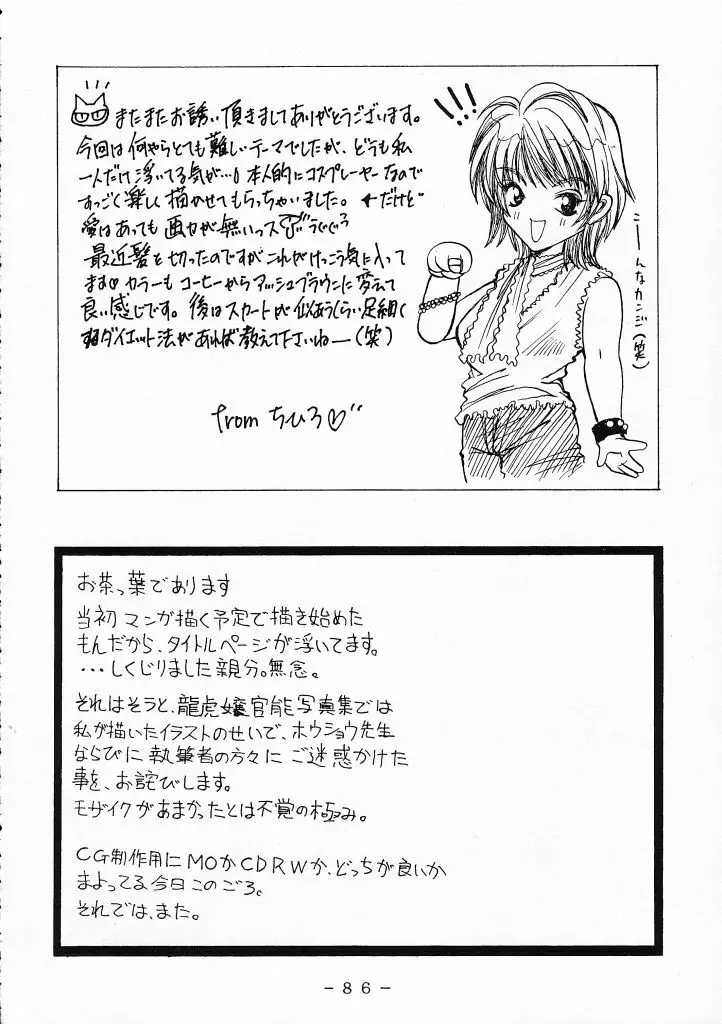 またまたお誘い頂きましてありがとうございます。
今回は何やらとても難しいテーマでしたが、どうも私
一人だけ浮いてる気が…! 本人的にコスプレーヤーなので
すっごく楽しく描かせてもらっちゃいました。←だけど
愛はあっても画力が無いっス
最近髪を切ったのですがこれがけっこう気に入って
ます♡カラーもコーヒーからアッシュブラウンに変えて
良い感じです。後はスカートが似あうくらい足細く
するダイエット法があれば教えて下さいねー(笑)
from ちひろ♡
!!!
こーんなカンジ(笑)
お茶っ葉であります
当初マンガ描く予定で描き始めた
もんだから、タイトルページが浮いてます。
・・・しくじりました親分。無念。
それはそうと、龍虎嬢官能写真集では
私が描いたイラストのせいで、ホウショウ先生
ならびに執筆者の方々にご迷惑かけた
事を、お詫びします。
モザイクがあまかったとは不覚の極み。
CG制作用にMOかCDRWか、どっちが良いか
まよってる今日このごろ。
それでは、また。
- 86 -